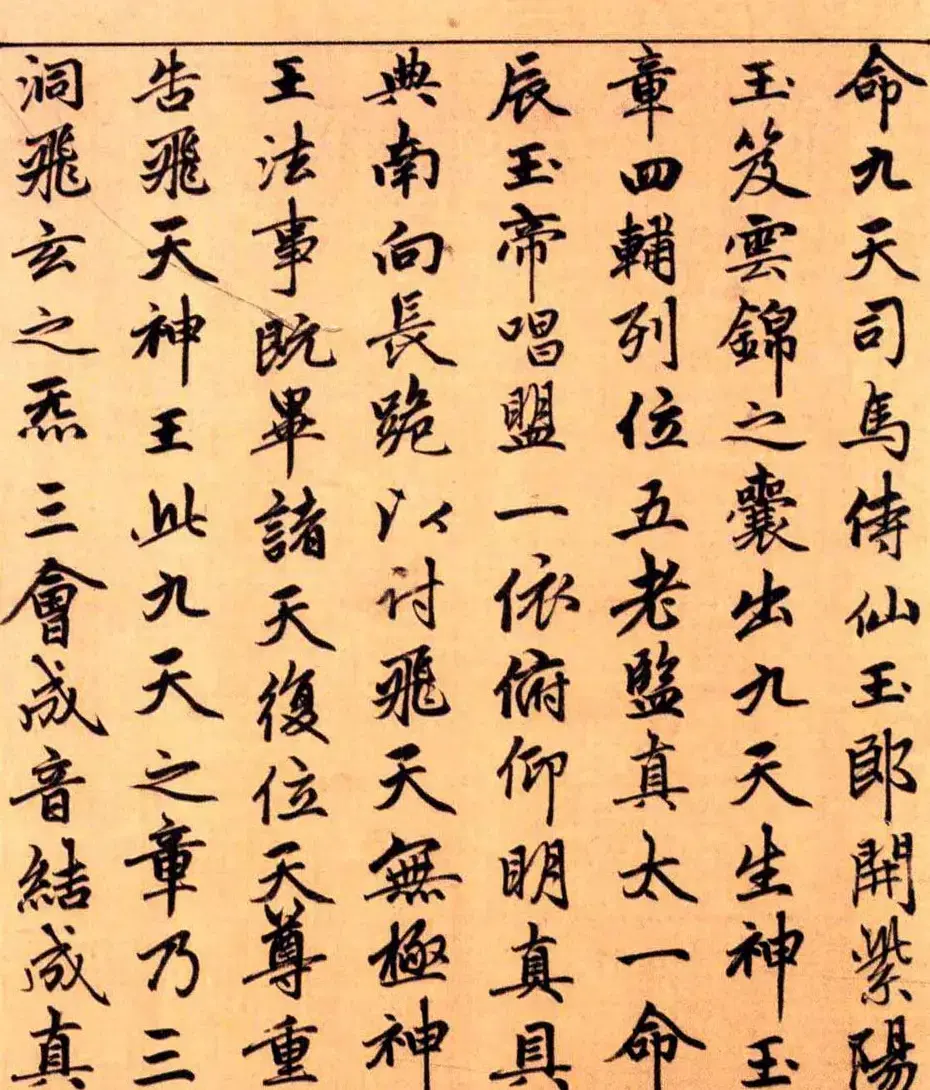 命九天司馬侍仙玉郎開紫陽
玉笈雲錦之囊出九天生神玉
章四輔列位五老監真太一命
辰玉帝唱盟一依俯仰明真具
典南向長跪以討飛天無極神
王法事既畢諸天復位天尊重
告飛天神王此九天之章乃三
洞飛玄之炁三會成音結成真